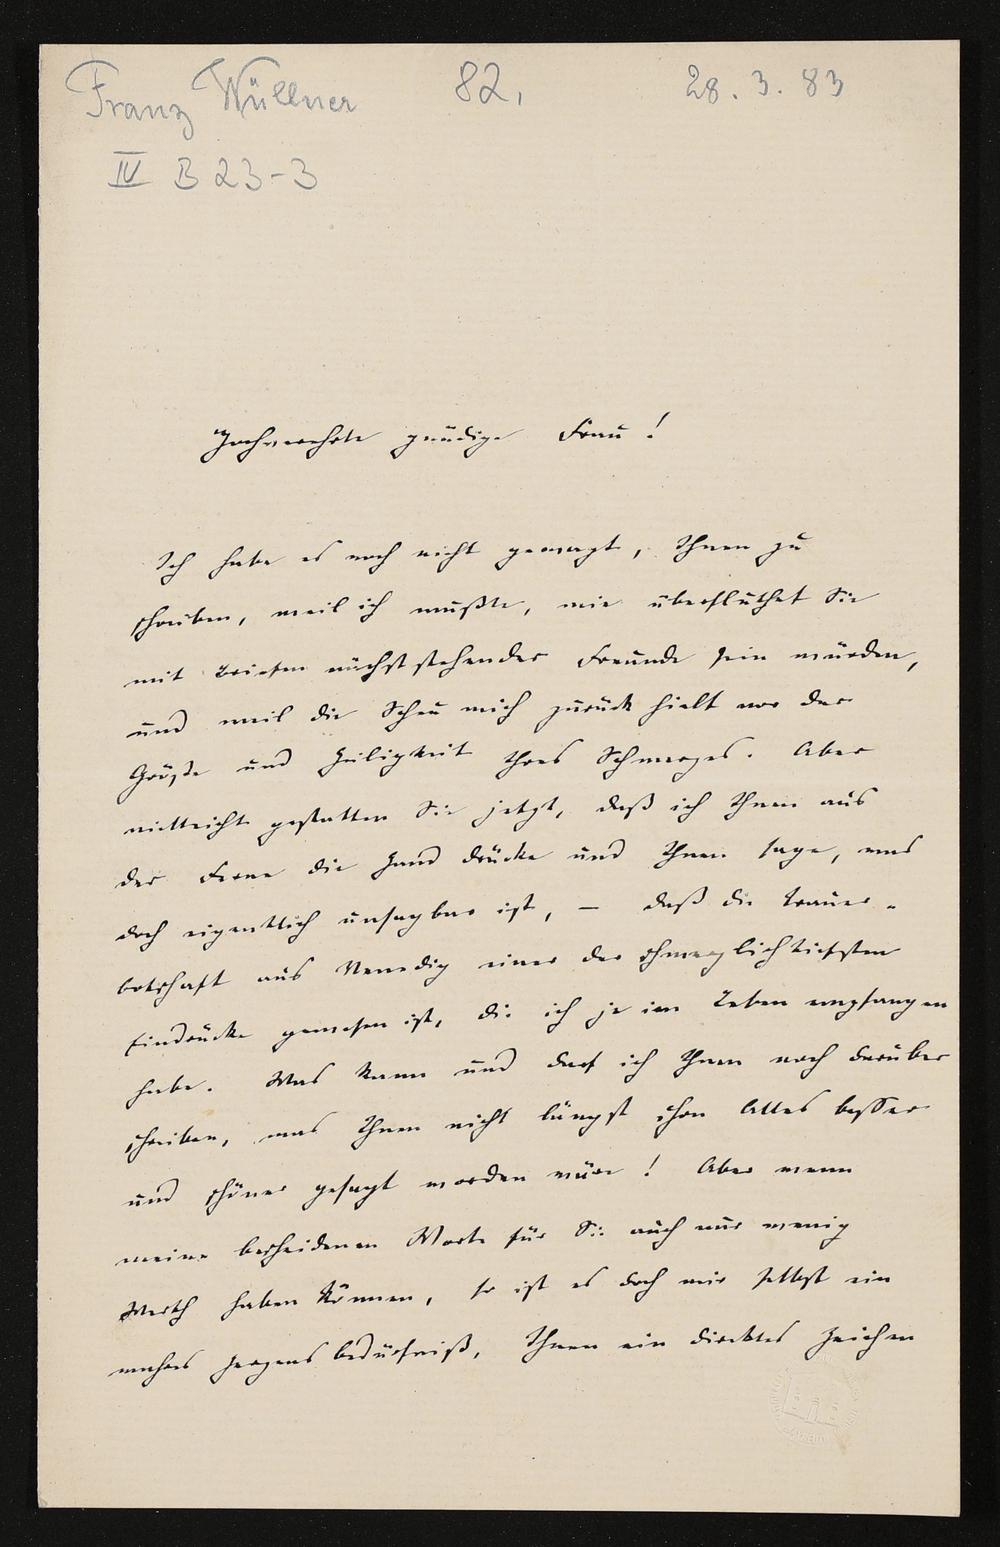 Franz Wüllner 82, 28. 3. 83
IV B 23-3
Hochverehrte gnädige Frau!
Ich habe es noch nicht gewagt, Ihnen zu
schreiben, weil ich wußte, wie überfluthet Sie
mit Briefen nächststehender Freunde sein würden,
und weil die Scheu mich zurück hielt vor der
Größe und Heiligkeit Ihres Schmerzes. Aber
vielleicht gestatten Sie jetzt, daß ich Ihnen aus
der Ferne die Hand drücke und Ihnen sage, was
doch eigentlich unsagbar ist, – daß die Trauer-
botschaft aus Venedig einer der schmerzlich tiefsten
Eindrücke gewesen ist, die ich je im Leben empfangen
habe. Was kann und darf ich Ihnen noch darüber
schreiben, was Ihnen nicht längst schon Alles besser
und schöner gesagt worden wäre! Aber wenn
meine bescheidenen Worte für Sie auch nur wenig
Werth haben können, so ist es doch mir selbst ein
wahres Herzensbedürfniß, Ihnen ein direktes Zeichen